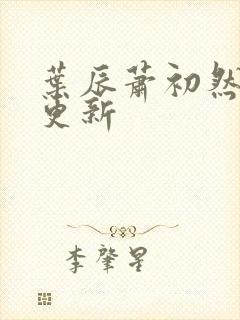 葉辰蕭初然
更新
李肇星